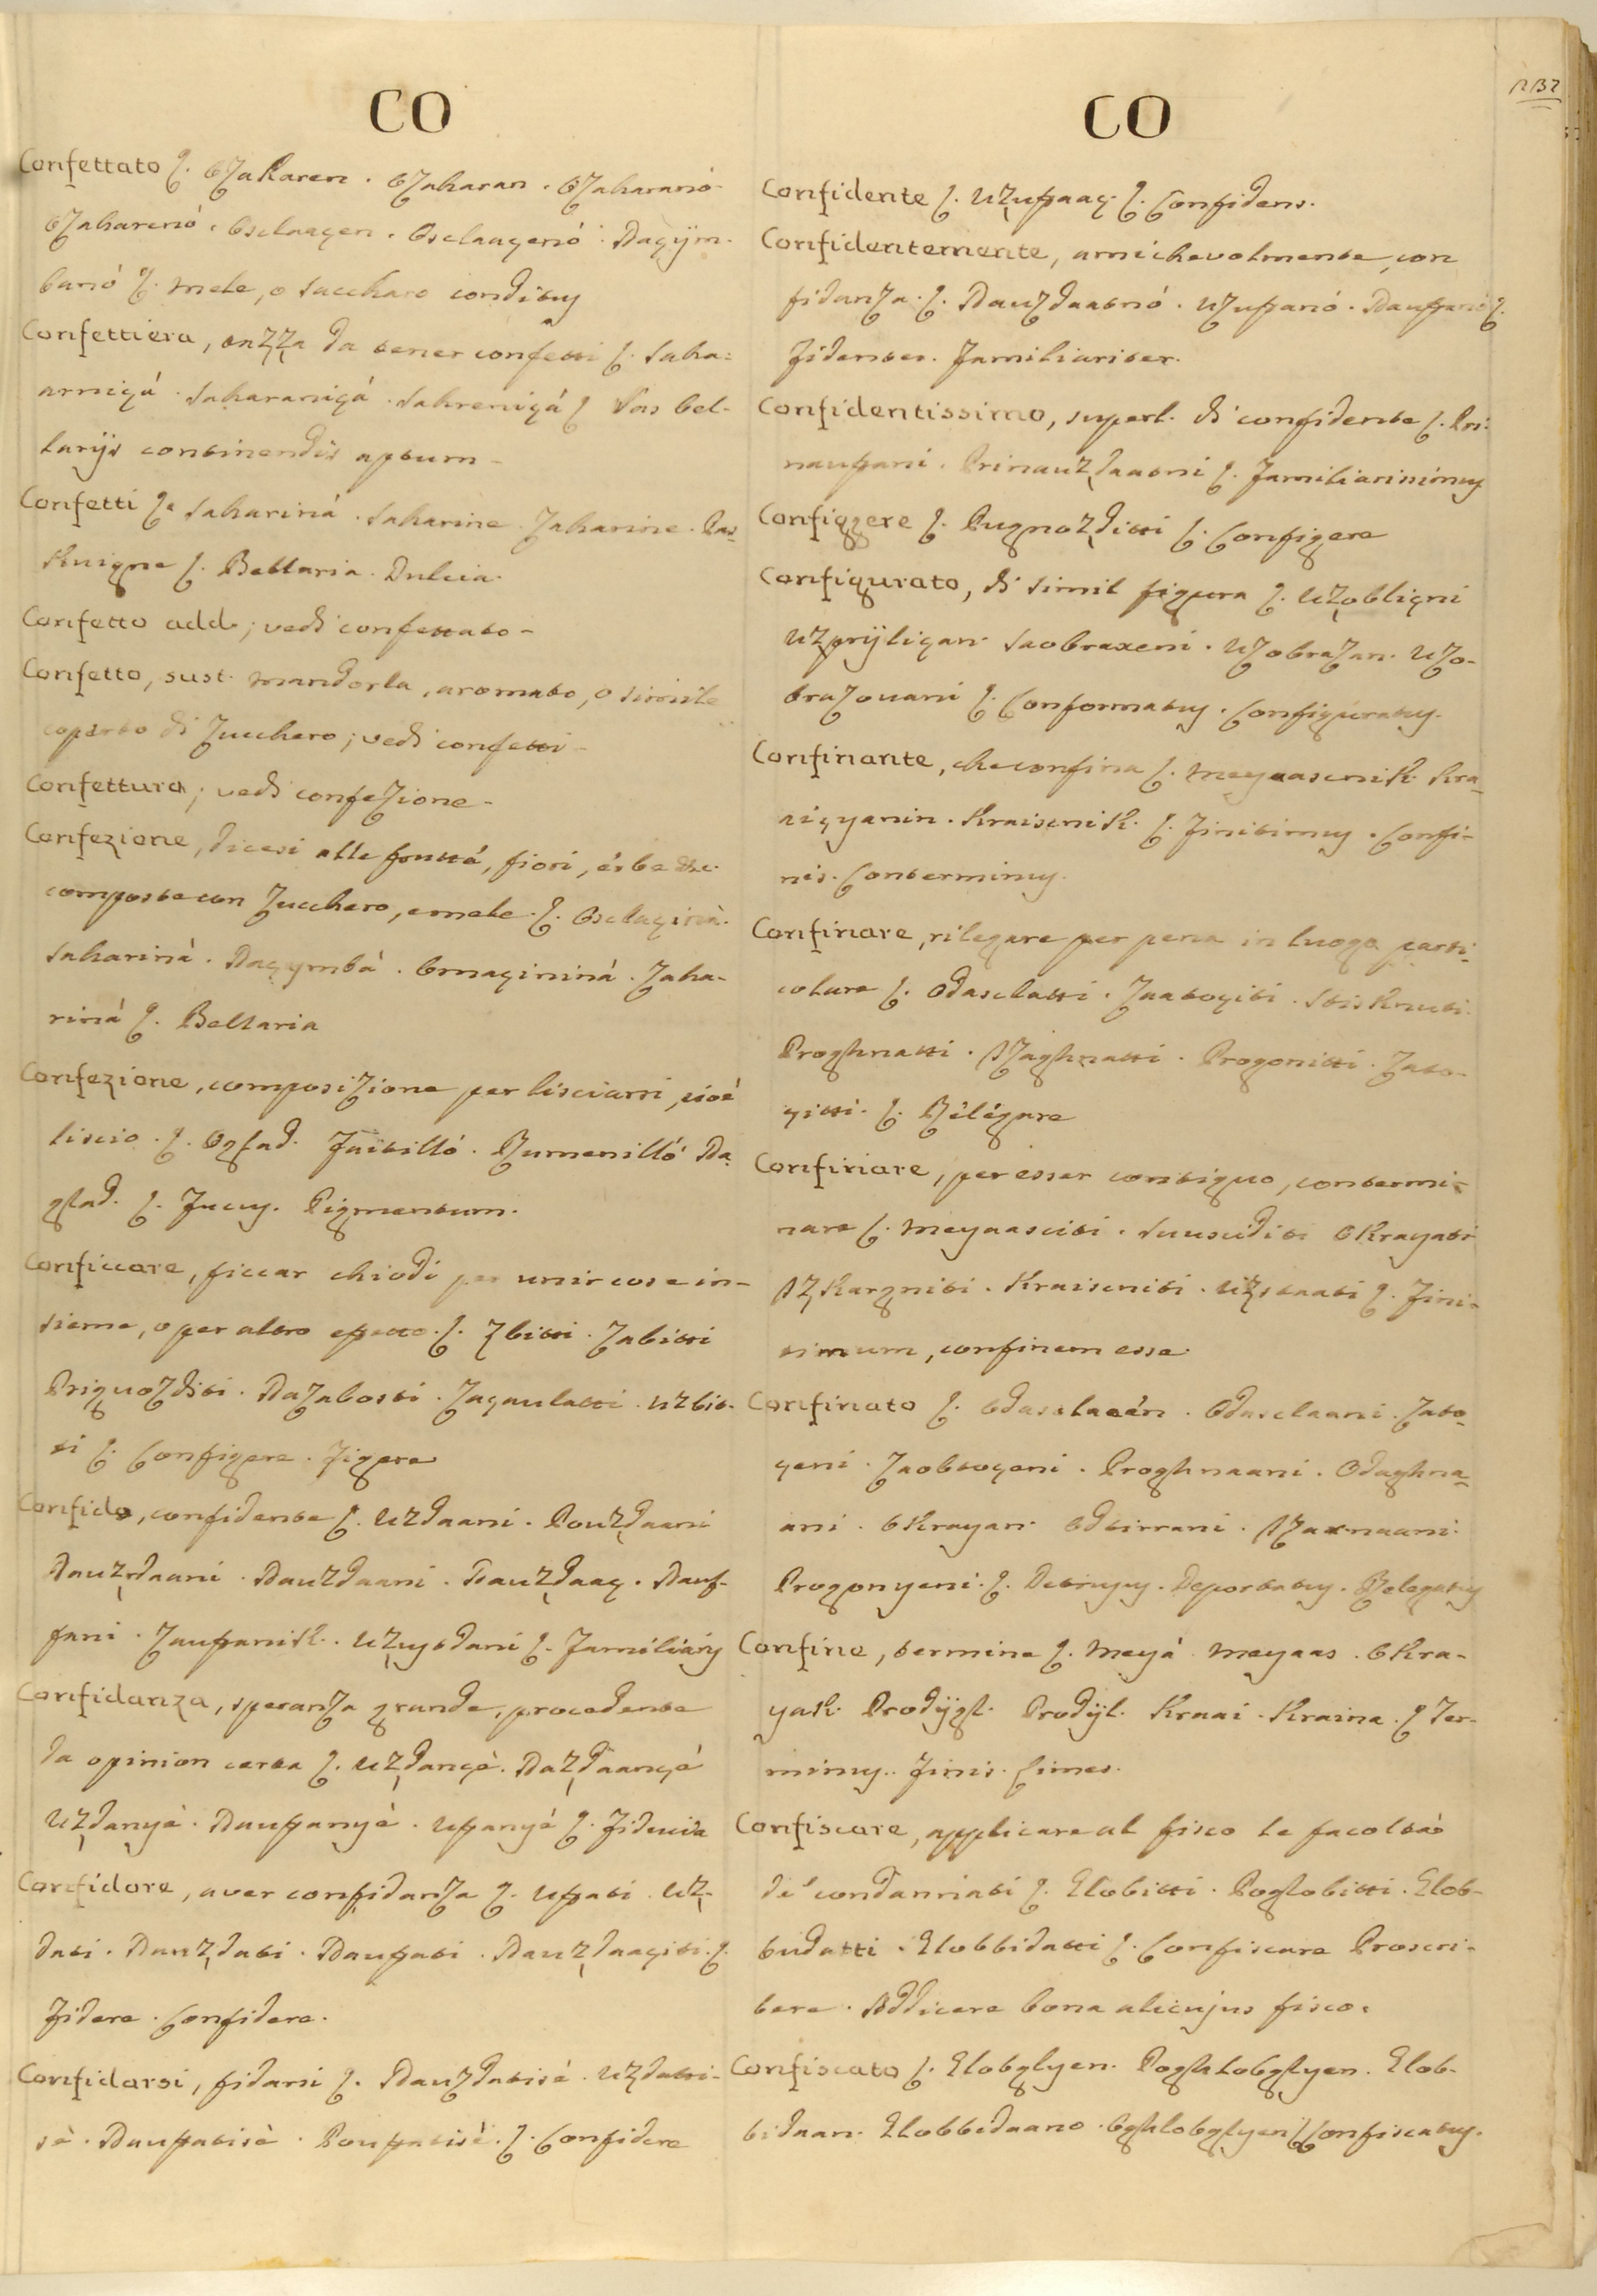 CO
Confettato ſ. Ozakaren. Ozaharan. Ozaharanò
Ozaharenò. Osclaaçen. Osclaaçenò. Daçijm-
banò ſ. mele, o sacchero conditus
Confettiera, vazza da tener confetti ſ. Saha-
arniçà. Saharaniçà. Sahreniçà ſ. Vas bel-
larijs continendis aptum
Confetti ſ. Saharinà. Saharine. Zaharine. Pas-
kuigne ſ. Bellaria. Dulcia.
Confetto add.; vedi confettato
Confetto, sust. mandorla, aromato, o simile
coperto di Zucchero; vedi confetti
Confettura; vedi confezione
Confezione, dicesi alle frutta, fiori, erbe etc.
composte con Zucchero, e mele. ſ. Osclaçinà.
Saharinà. Daçymbà. Omaçininà. Zaha-
rinà ſ. Bellaria
Confezione, composizione per lisciarsi, cioè
liscio. ſ. Oglad. Fuitillò. Rumenillò Da-
glad. ſ. Fucus. Pigmentum.
Conficcare, ficcar chiodi per unir cose in-
sieme, o per altro effetto. ſ. Zbitti. Zabitti
Priguozditi. Dazabosti. Zaçaulatti. uzbit-
ti ſ. Configere. Figere
Confido, confidente ſ. Uzdaani. Pouzdaani
Dauzdaani. Dauzdaani. Dauzdaaç. Dauf-
fani. Zaufanik. Uzuysdani ſ. Familiaris
Confidanza, speranza grande, procedente
da opinion certa ſ. Uzdançè. Dazdaançè
Uzdanyè. Daufanyè. Ufanyè ſ. Fiducia
Confidare, aver confidanza ſ. Ufati. Uz-
dati. Dauzdati. Daufati. Dauzdaaçiti. ſ.
Fidere. Confidere.
Confidarsi, fidarsi ſ. Dauzdatisè. Uzdatti-
sè. Daufatisè. Poufatisè. ſ. Confidere
CO
1232
Confidente ſ. Uzufaaç. ſ. Confidens.
Confidentemente, amichevolmente, con
fidanza. ſ. Dauzdaatnò. Uzufanò. Daufanò ſ.
Fidenter. Familiariter.
Confidentissimo, superl. di confidente ſ. Pri-
naufani. Prinauzdaatni ſ. Familiarissimus
Configgere ſ. Pugnozditti ſ. Configere
Configurato, di simil figura ſ. Uzobliçni
Uzprijliçan. Saobraxeni. Uzobrazan. Uzo-
brazouani ſ. Conformatus. Configuratus.
Confinante, che confina ſ. Meyaascnik. Kra-
aiçyanin. Kraiscnik. ſ. Finitimus. Confi-
nis. Conterminus.
Confinare, rilegare per pena in luogo parti-
colare ſ. Odasclatti. Zaatoçiti. Stisknuti.
Proghnatti. Izaghnatti. Progonitti. Zato-
çitti. ſ. Relegare
Confinare, per esser contiguo, contermi-
nare ſ. Meyaasciti. Suusciditi Okrayati
Izkargniti. Kraisciniti. Uzstaati ſ. Fini-
timum, confinem esse.
Confinato ſ. Odasclaaèn. Odasclaani. Zato-
çeni. Zaobtoçeni. Proghnaani. Odaghna-
ani. Okrayan. Odtirrani. Izaxnaani.
Progonyeni. ſ. Detrusus. Deportatus. Relegatus
Confine, termine ſ. Meyà. Meyaas. Okra-
yak. Prodijgl. Prodijl. Kraai. Kraina. ſ. Ter-
minus. Finis. Limes.
Confiscare, applicare al fisco le facoltà
de' condannati ſ. Elobitti. Poglobitti. Elob-
budatti. Elobbidatti ſ. Confiscare Proscri-
bere. Addicere bona alicujus fisco.
Confiscato ſ. Elobglyen. Poghlobglyen. Elob-
bidaan. Elobbedaano. Oghlobglyen ſ. Confiscatus.